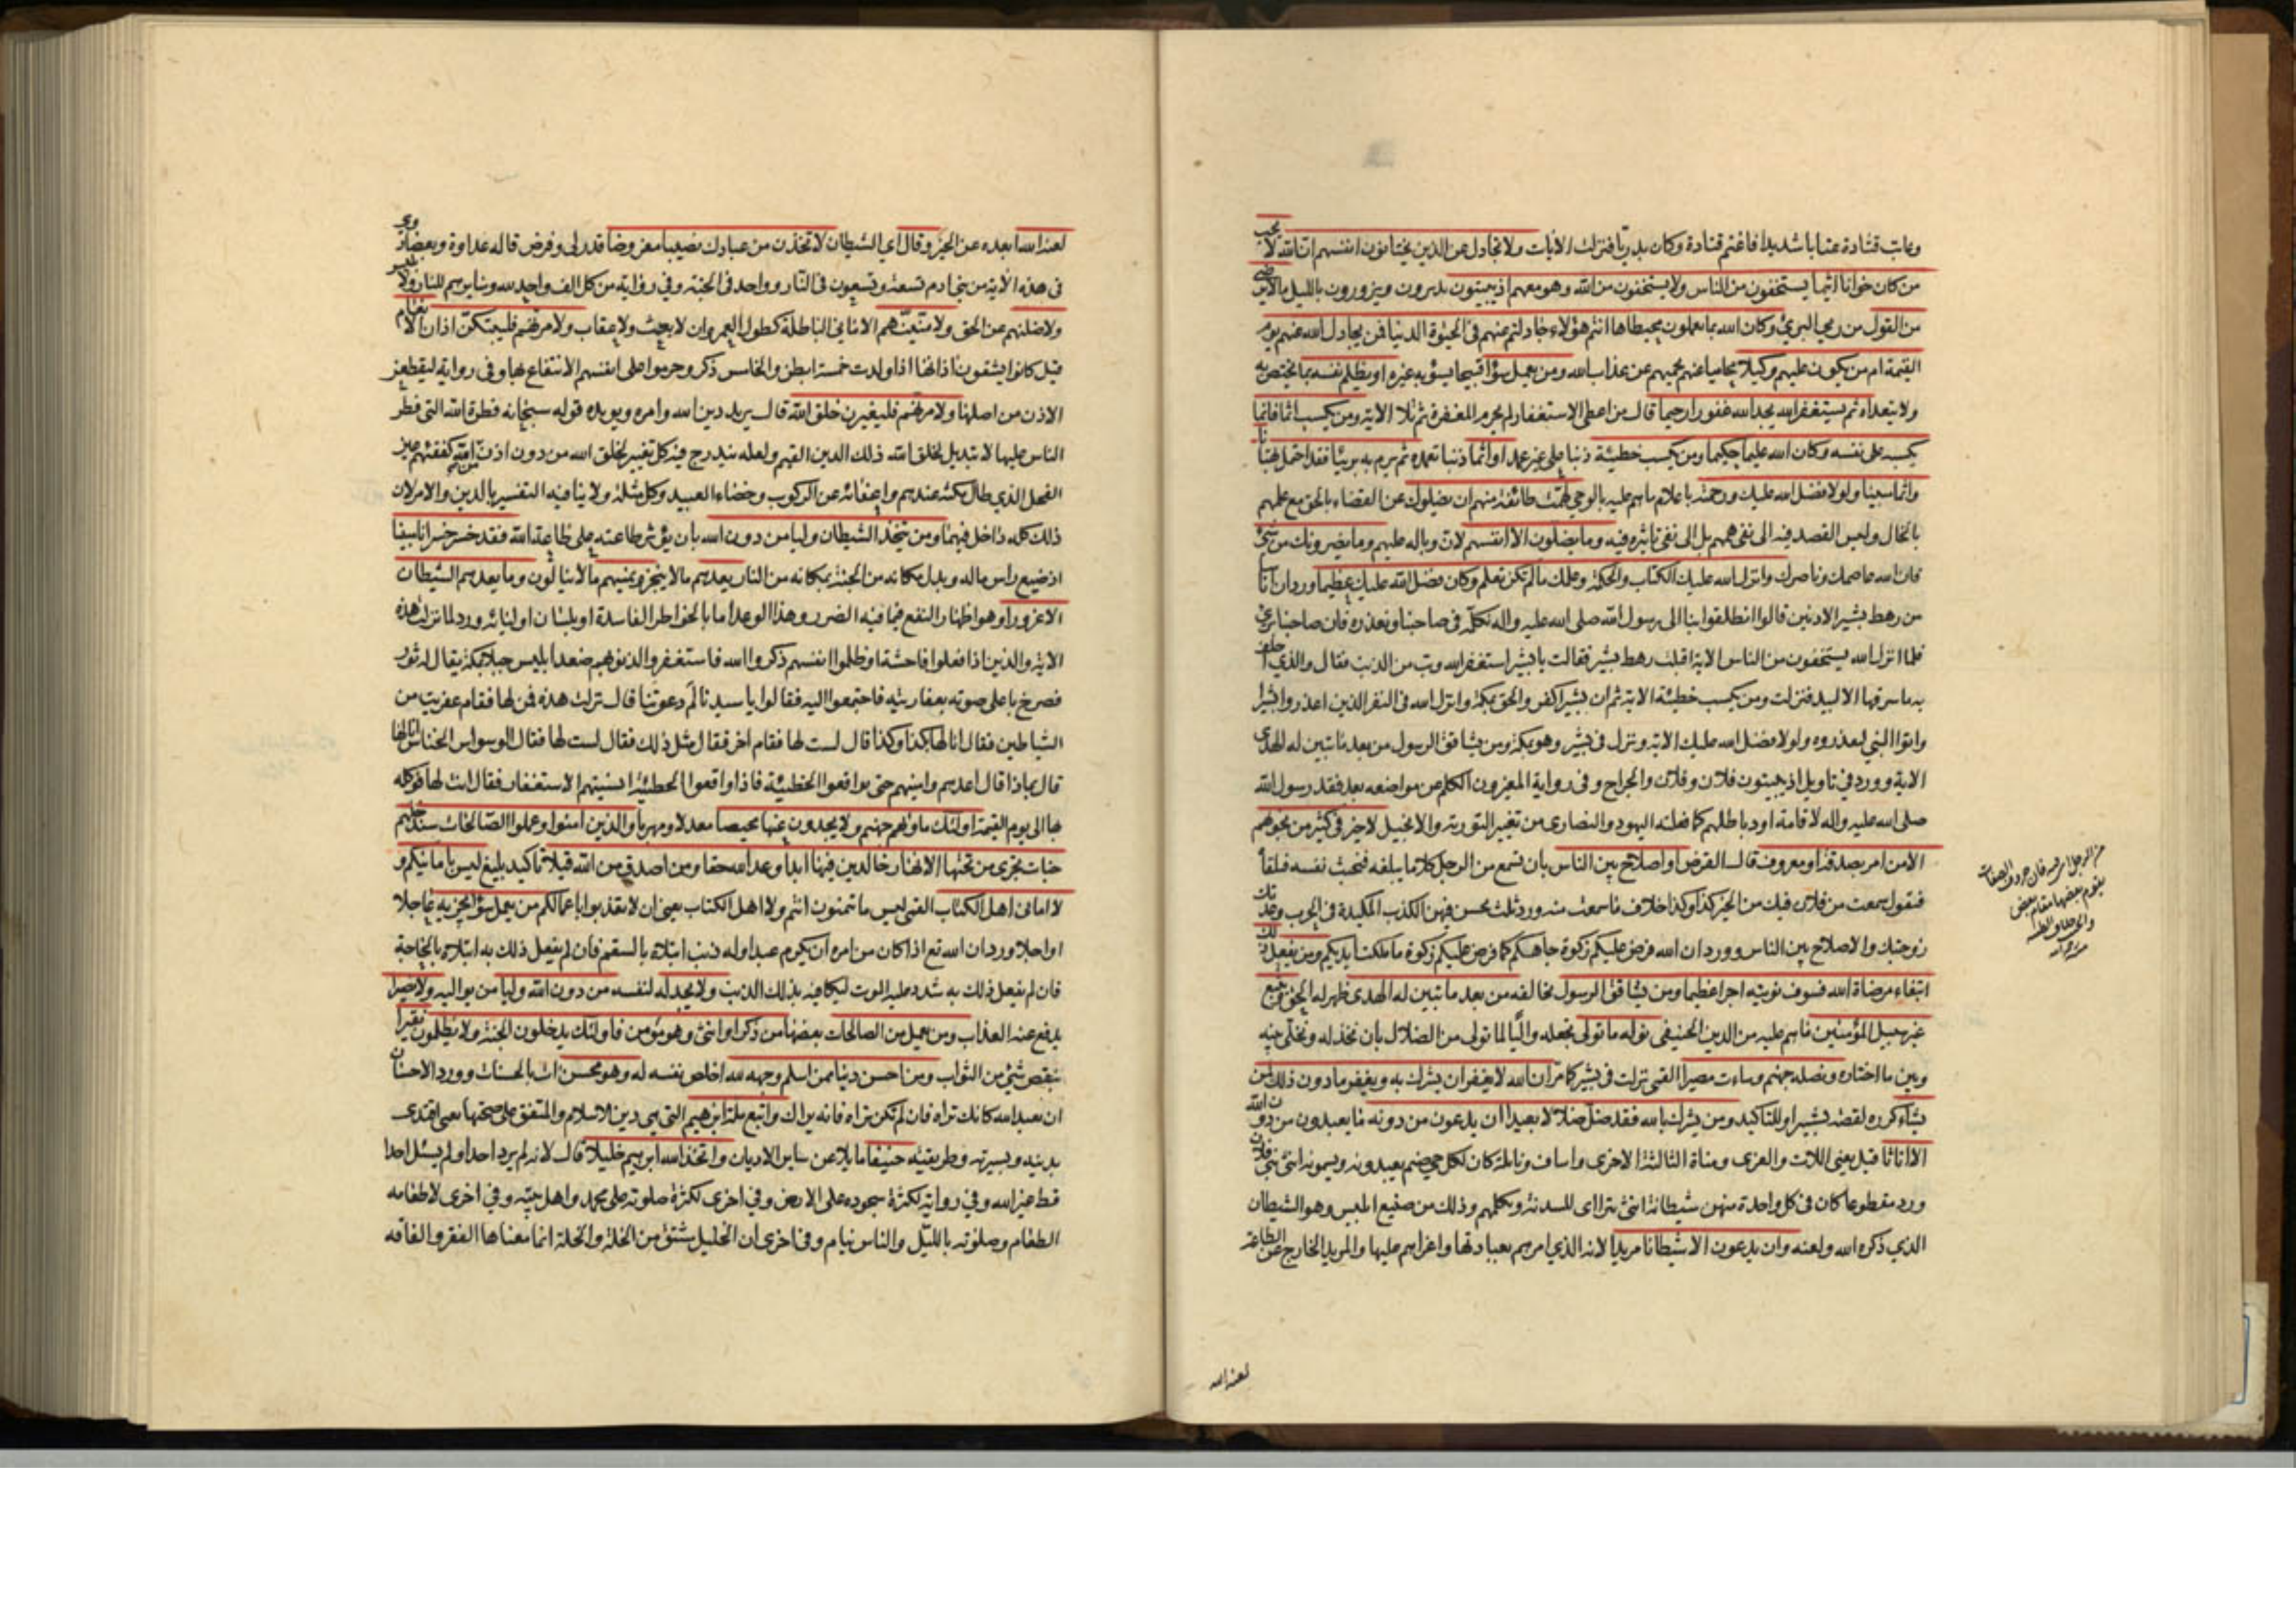 وعاتب قتادة عتابا شديدا فاغتم قتادة وكان بدريا فنزلت الايات ولا تجادل عن الذين يختانون انفسهم ان الله لا يحب
من كان خوانا اثيما يستخفون من الناس ولا يستخفون من الله وهو معهم اذ يبيتون يدبرون ويزورون بالليل ما لا يرضى
من القول من رمي البريء وكان الله بما يعملون محيطا ها انتم هؤلاء جادلتم عنهم في الحيوة الدنيا فمن يجادل الله عنهم يوم
القيمة ام من يكون عليهم وكيلا محاميا عنهم يحميهم عن عذاب الله ومن يعمل سوءا قبيحا يسؤ به غيره او يظلم نفسه بما يختص به
ولا يتعداه ثم يستغفر الله يجد الله غفورا رحيما قال من اعطي الاستغفار لم يحرم المغفرة ثم تلا الاية ومن يكسب اثما فانما
يكسبه على نفسه وكان الله عليما حكيما ومن يكسب خطيئة ذنبا على غير عمد او اثما ذنبا تعمده ثم يرم به بريئا فقد احتمل بهتانا
واثما مبينا ولولا فضل الله عليك ورحمته باعلام ما هم عليه بالوحي لهمت طائفة منهم ان يضلوك عن القضاء بالحق مع علمهم
بالحال وليس القصد فيه الى نفي همهم بل الى نفي تاثيره فيه وما يضلون الا انفسهم لان وباله عليهم وما يضرونك من شيء
فان الله عاصمك وناصرك وانزل الله عليك الكتاب والحكمة وعلمك ما لم تكن تعلم وكان فضل الله عليك عظيما ورد ان اناسا
من رهط بشير الادنين قالوا انطلقوا بنا الى رسول الله صلى الله عليه واله نكلمه في صاحبنا ونعذره فان صاحبنا بريء
فلما انزل الله يستخفون من الناس الاية اقبلت رهط بشير فقالت يا بشير استغفر الله وتب من الذنب فقال والذي احلف
به ما سرقها الا لبيد فنزلت ومن يكسب خطيئة الاية ثم ان بشيرا كفر والحق بمكة وانزل الله في النفر الذين اعذروا بشيرا
واتوا النبي ليعذروه ولولا فضل الله عليك الاية ونزل في بشير وهو بمكة ومن يشاقق الرسول من بعد ما تبين له الهدى
الاية وورد في تاويل اذ يبيتون فلان وفلان والجراح وفي رواية المغيرون الكلم عن مواضعه بعد فقد رسول الله
صلى الله عليه واله لاقامة اود باطلهم كما فعلته اليهود والنصارى من تغيير التورية والانجيل لا خير في كثير من نجويهم
الا من امر بصدقة او معروف قال القرض او اصلاح بين الناس بان تسمع من الرجل كلاما يبلغه فتخبث نفسه فتلقاه
فتقول سمعت من فلان فيك من الخير كذا وكذا خلاف ما سمعت منه وورد ثلث يحسن فيهن الكذب المكيدة في الحرب وعدتك
زوجتك والاصلاح بين الناس وورد ان الله فرض عليكم زكوة جاهكم كما فرض عليكم زكوة ما ملكت ايديكم ومن يفعل ذلك
ابتغاء مرضاة الله فسوف نؤتيه اجرا عظيما ومن يشاقق الرسول يخالفه من بعد ما تبين له الهدى ظهر له الحق ويتبع
غير سبيل المؤمنين ما هم عليه من الدين الحنيفي نوله ما تولى نجعله واليا لما تولى من الضلال بان نخذله ونخلي بينه
وبين ما اختاره ونصله جهنم وساءت مصيرا القمي نزلت في بشير كما مر ان الله لا يغفر ان يشرك به ويغفر ما دون ذلك لمن
يشاء كرره لقصة بشير او للتاكيد ومن يشرك بالله فقد ضل ضلالا بعيدا ان يدعون من دونه ما يعبدون من دون الله
الا اناثا قيل يعني اللات والعزى ومناة الثالثة الاخرى واساف ونائلة كان لكل حي صنم يعبدونه ويسمونه انثى بني فلان
ورد مقطوعا كان في كل واحدة منهن شيطانة انثى تتراءى للسدنة وتكلمهم وذلك من صنيع ابليس وهو الشيطان
الذي ذكره الله ولعنه وان يدعون الا شيطانا مريدا لانه الذي امرهم بعبادتها واغراهم عليها والمريد الخارج عن الطاعة
لعنه الله
لعنه الله ابعده عن الخير وقال اي الشيطان لاتخذن من عبادك نصيبا مفروضا قدر لي وفرض قاله عداوة وبغضا وروي
في هذه الاية من بني ادم تسعة وتسعون في النار وواحد في الجنة وفي رواية من كل الف واحد لله وسايرهم للنار ولابليس
ولاضلنهم عن الحق ولامنينهم الاماني الباطلة كطول العمر وان لا بعث ولا عقاب ولامرنهم فليبتكن اذان الانعام
قيل كانوا يشقون اذانها اذا ولدت خمسة ابطن والخامس ذكر وحرموا على انفسهم الانتفاع بها وفي رواية ليقطعن
الاذن من اصلها ولامرنهم فليغيرن خلق الله قال يريد دين الله وامره ويؤيده قوله سبحانه فطرة الله التي فطر
الناس عليها لا تبديل لخلق الله ذلك الدين القيم ولعله يندرج فيه كل تغيير لخلق الله من دون اذن من الله كفقئهم عين
الفحل الذي طال مكثه عندهم واعفائه عن الركوب وخصاء العبيد وكل مثلة ولا ينافيه التفسير بالدين والامر لان
ذلك كله داخل فيهما ومن يتخذ الشيطان وليا من دون الله بان يؤثر طاعته على طاعة الله فقد خسر خسرانا مبينا
اذ ضيع راس ماله وبدل مكانه من الجنة بمكانه من النار يعدهم ما لا ينجز ويمنيهم ما لا ينالون وما يعدهم الشيطان
الا غرورا وهو اظهار النفع فيما فيه الضرر وهذا الوعد اما بالخواطر الفاسدة او بلسان اوليائه ورد لما نزلت هذه
الاية والذين اذا فعلوا فاحشة او ظلموا انفسهم ذكروا الله فاستغفروا لذنوبهم صعد ابليس جبلا بمكة يقال له ثور
فصرخ باعلى صوته بعفاريته فاجتمعوا اليه فقالوا يا سيدنا لم دعوتنا قال نزلت هذه فمن لها فقام عفريت من
الشياطين فقال انا لها بكذا وكذا قال لست لها فقام اخر فقال مثل ذلك فقال لست لها فقال الوسواس الخناس انا لها
قال بماذا قال اعدهم وامنيهم حتى يواقعوا الخطيئة فاذا واقعوا الخطيئة انسيتهم الاستغفار فقال انت لها فوكله
بها الى يوم القيمة اولئك ماويهم جهنم ولا يجدون عنها محيصا معدلا ومهربا والذين امنوا وعملوا الصالحات سندخلهم
جنات تجري من تحتها الانهار خالدين فيها ابدا وعد الله حقا ومن اصدق من الله قيلا تاكيد بليغ ليس بامانيكم و
لا اماني اهل الكتاب القمي ليس ما تتمنون انتم ولا اهل الكتاب يعني ان لا تعذبوا باعمالكم من يعمل سوءا يجز به عاجلا
او اجلا ورد ان الله تع اذا كان من امره ان يكرم عبدا وله ذنب ابتلاه بالسقم فان لم يفعل ذلك به ابتلاه بالحاجة
فان لم يفعل ذلك به شدد عليه الموت ليكافيه بذلك الذنب ولا يجد له لنفسه من دون الله وليا من يواليه ولا نصيرا
يدفع عنه العذاب ومن يعمل من الصالحات بعضها من ذكر او انثى وهو مؤمن فاولئك يدخلون الجنة ولا يظلمون نقيرا
بنقص شيء من الثواب ومن احسن دينا ممن اسلم وجهه لله اخلص نفسه له وهو محسن ات بالحسنات وورد الاحسان
ان تعبد الله كانك تراه فان لم تكن تراه فانه يراك واتبع ملة ابرهيم التي هي دين الاسلام والمتفق على صحتها يعني اقتدى
بدينه وبسيرته وطريقته حنيفا مايلا عن ساير الاديان واتخذ الله ابرهيم خليلا قال لانه لم يرد احدا ولم يسئل احدا
قط غير الله وفي رواية لكثرة سجوده على الارض وفي اخرى لكثرة صلوته على محمد واهل بيته وفي اخرى لاطعامه
الطعام وصلوته بالليل والناس نيام وفي اخرى ان الخليل مشتق من الخلة والخلة انما معناها الفقر والفاقه